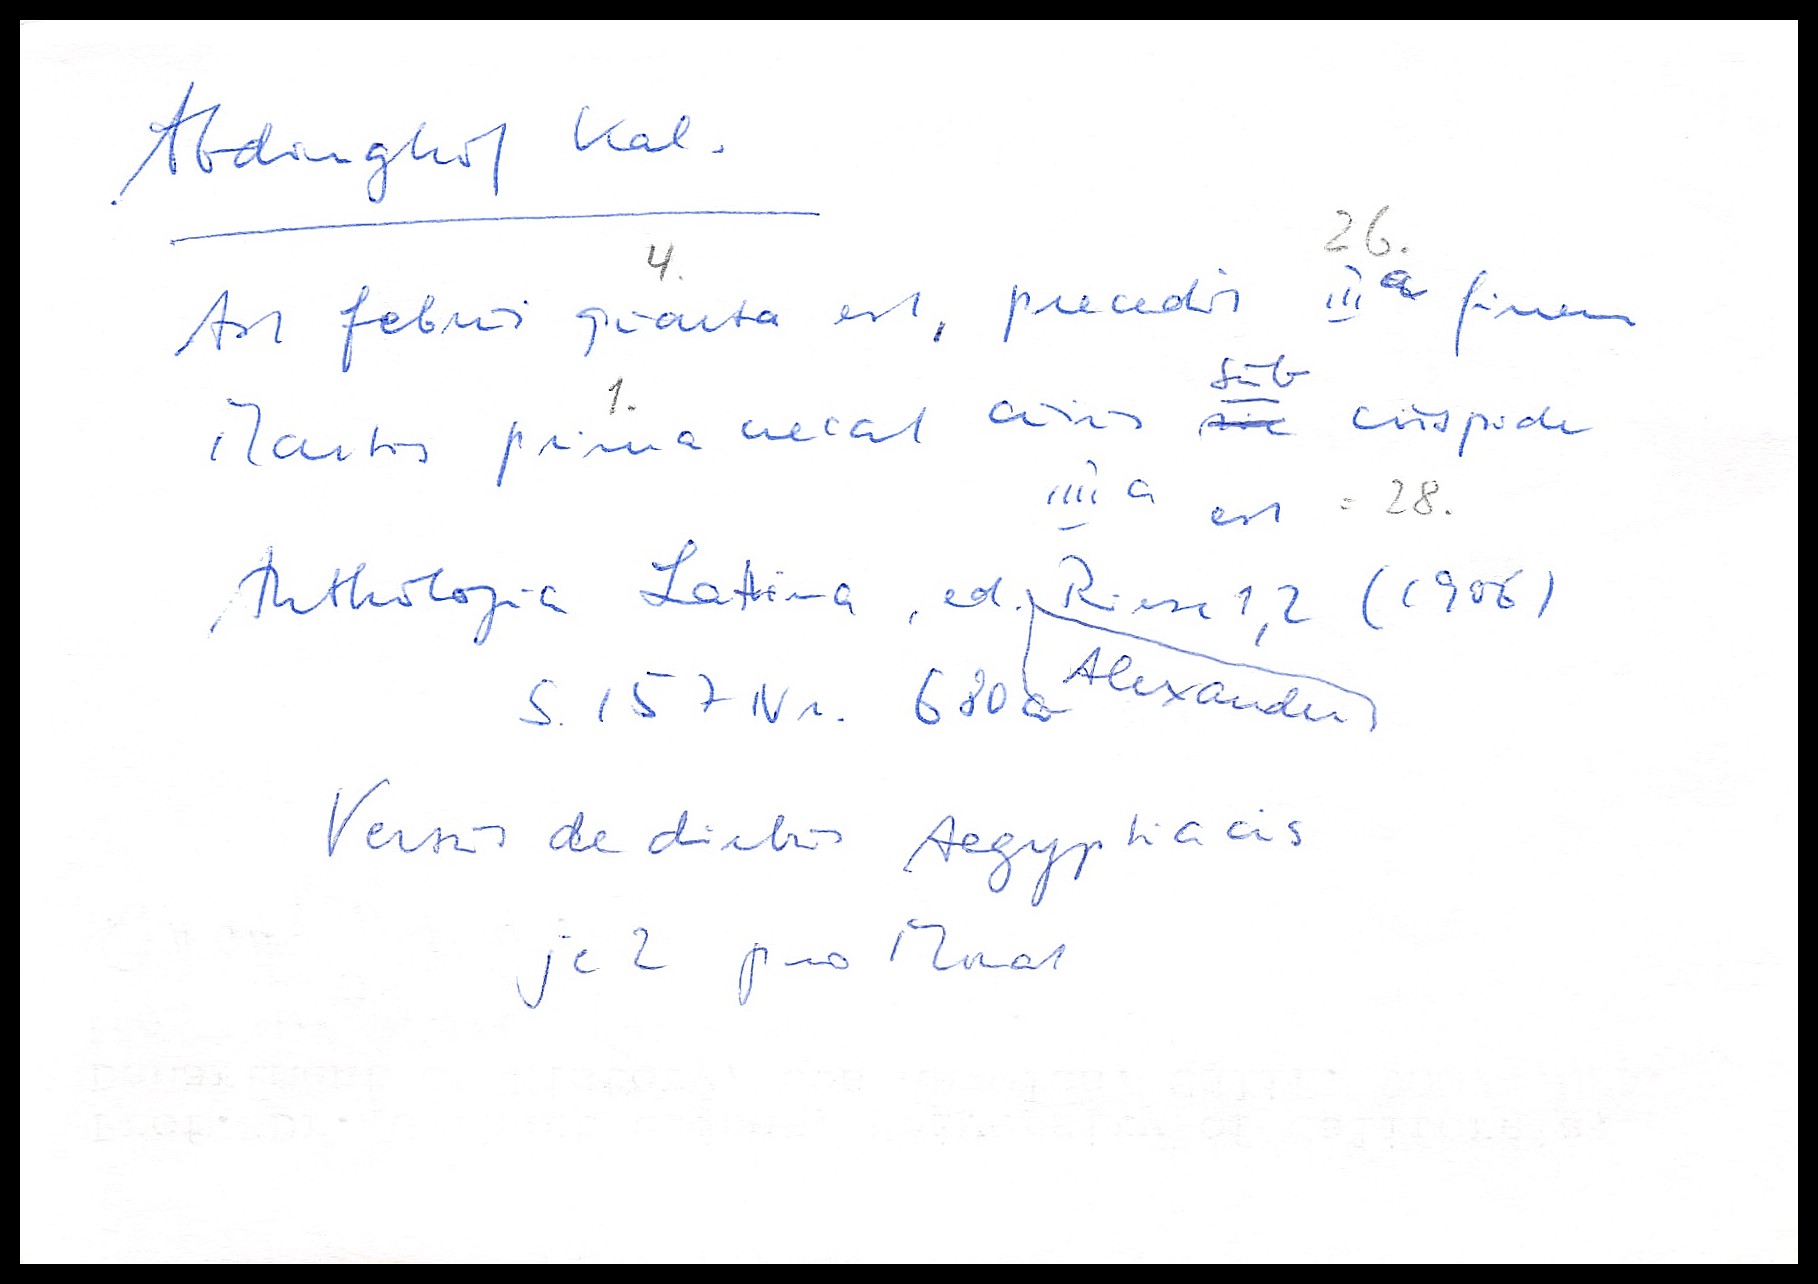 Abdinghof Kal.
4. 26.
Ast februi quarta est, precedit IIIa finem
1. sub
Martis prima necat cuius sic cuspide
IIIIa est = 28.
Anthologia Latina, ed. Riese 1,2 (1906)
S. 157 Nr. 680a Alexander
Versus de diebus Aegyptiacis
je 2 pro Monat